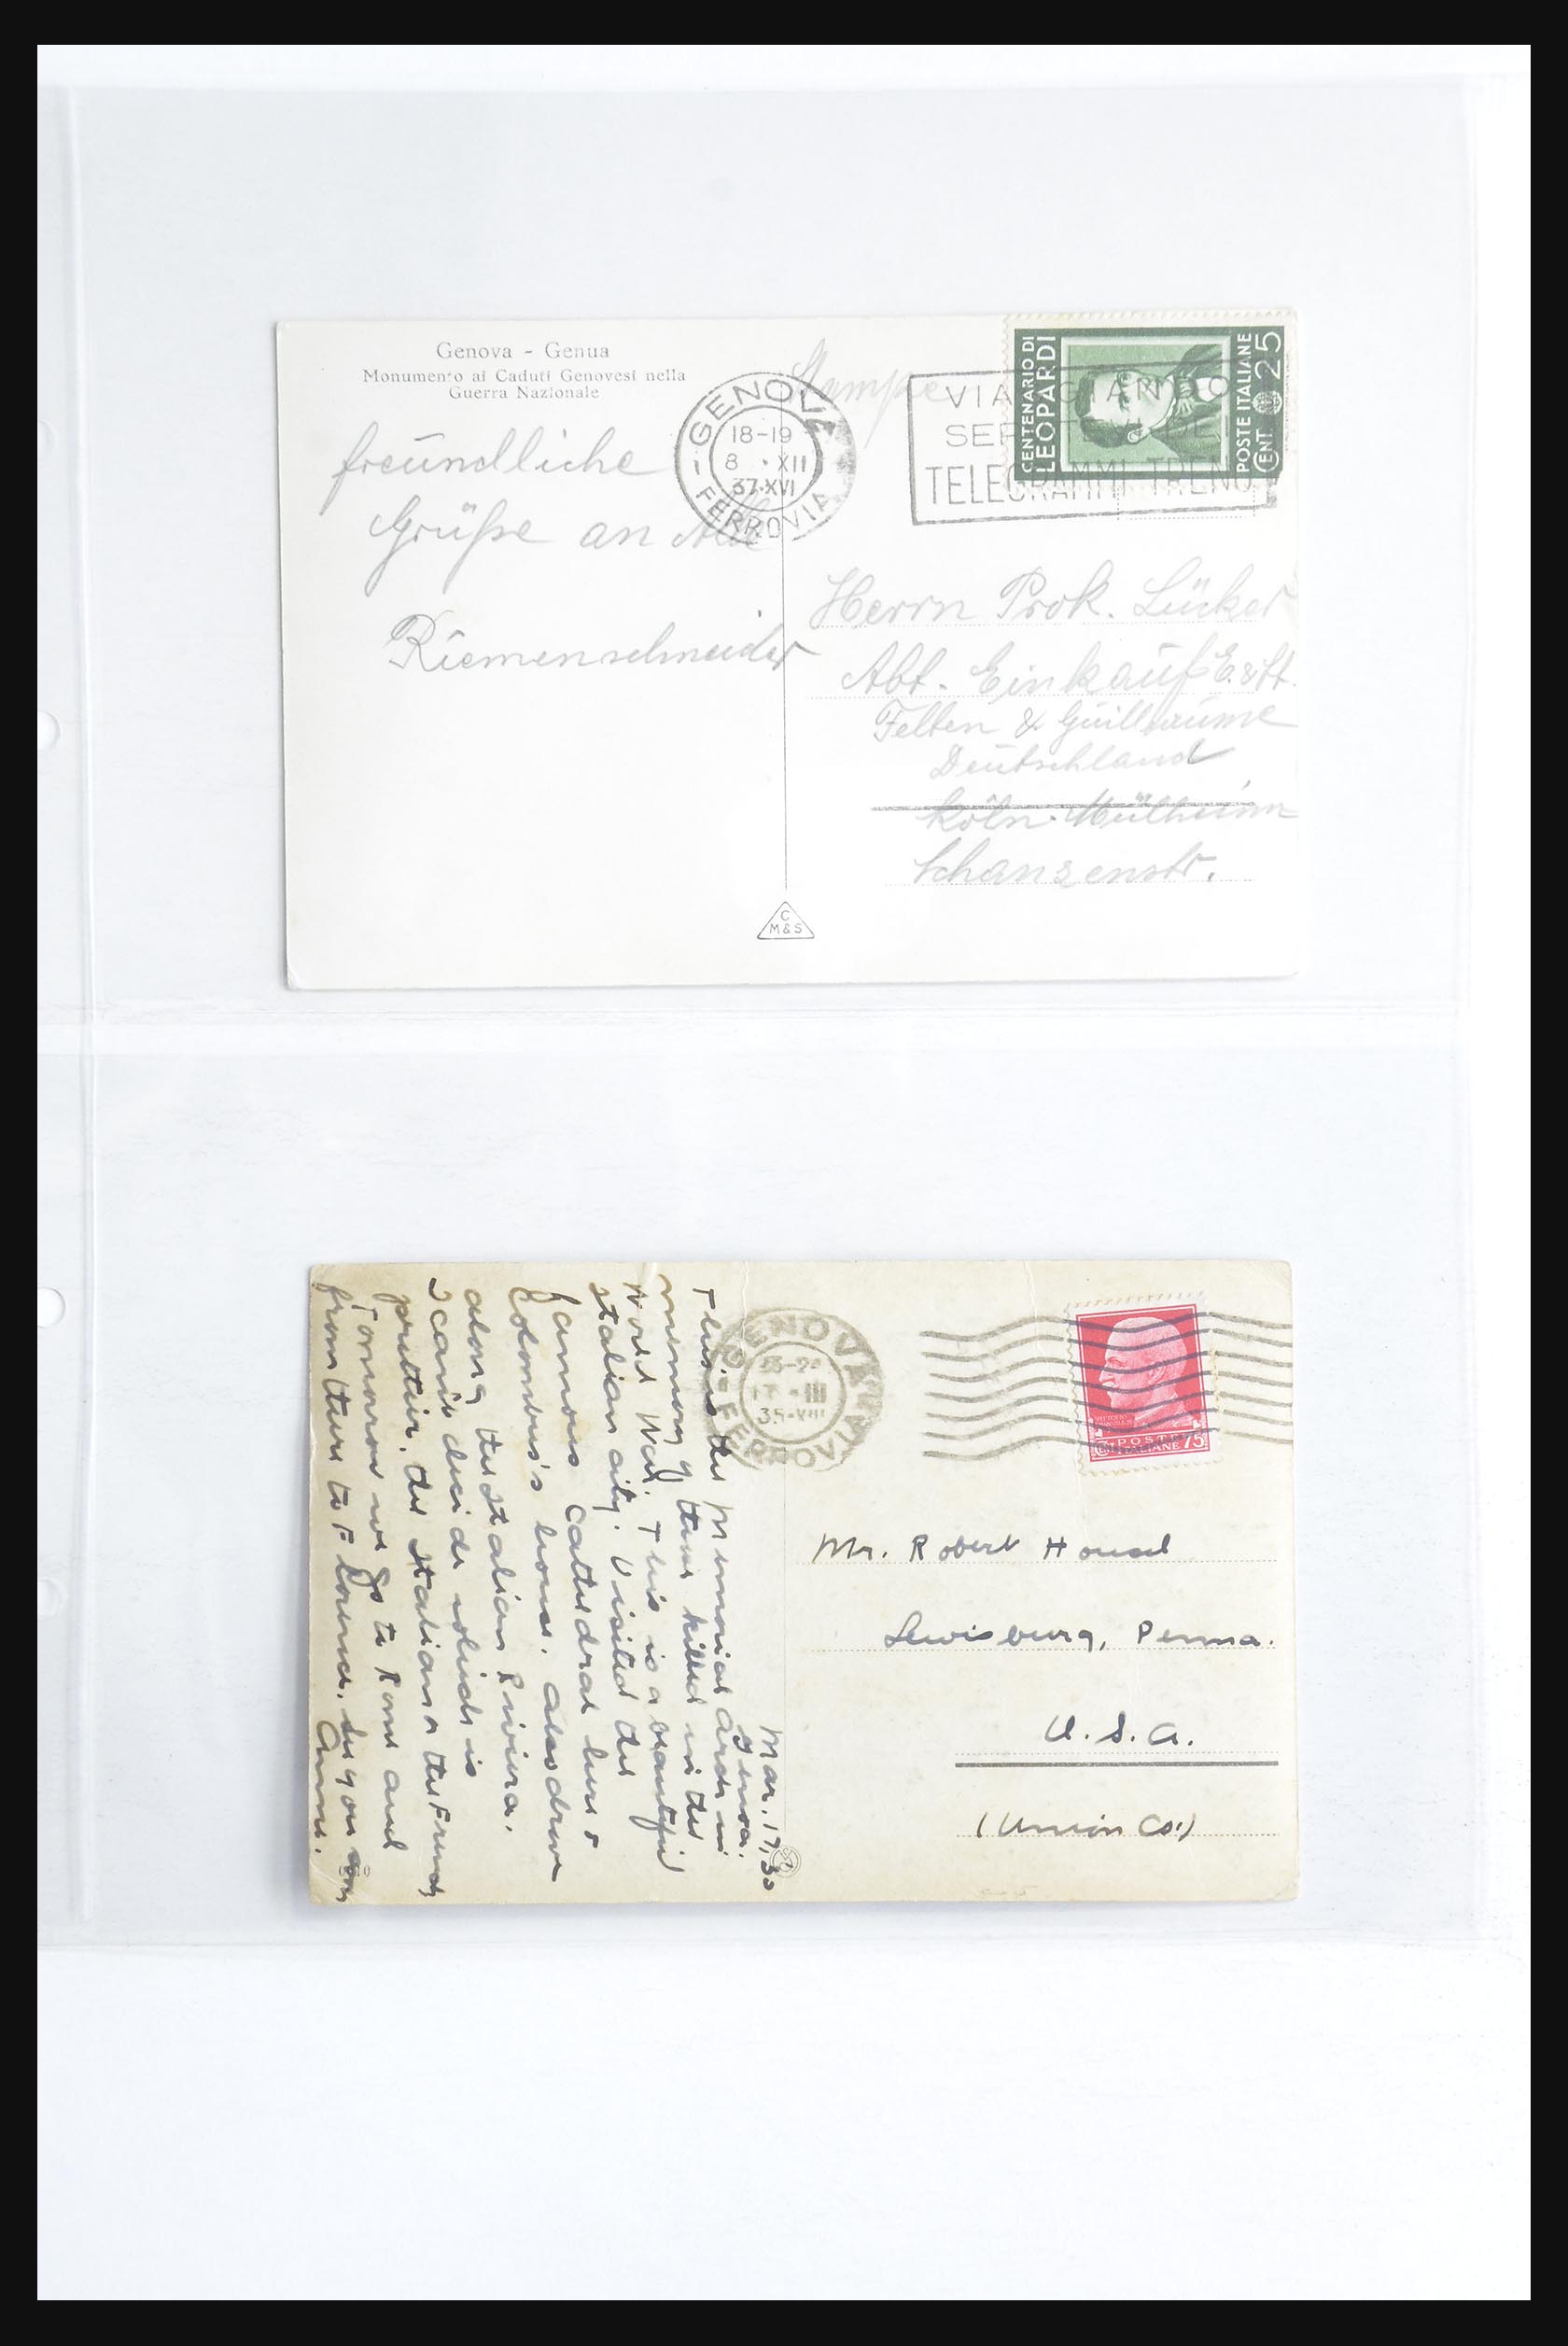 Genova - Genua
Monumento ai Caduti Genovesi nella
Guerra Nazionale
Stampe
GENOVA
18-19
8 · XII
37·XVI
FERROVIA
VIAGGIANDO
SERVITEVI DEI
TELEGRAMMI-TRENO
CENTENARIO DI
LEOPARDI
POSTE ITALIANE
CENT 25
freundliche
Grüße an Alle
Riemenschneider
Herrn Prok. Lücker
Abt. Einkauf E. & H.
Felten & Guilleaume
Deutschland
Köln-Mülheim
Schanzenstr.
C
M&S
Mar. 17, 35
Genoa.
This is the Memorial Arch in
memory of those killed in the
World War. This is a beautiful
Italian city. Visited the
famous cathedral here &
Columbus's home. Also drove
along the Italian Riviera.
I can't decide which is
prettier, the Italian or the French
Tomorrow we go to Rome and
from there to Florence. See you
Anne.
GENOVA
III
FERROVIA
POSTE
ITALIANE 75
Mr. Robert Housel
Lewisburg, Penna.
U.S.A.
(Union Co.)